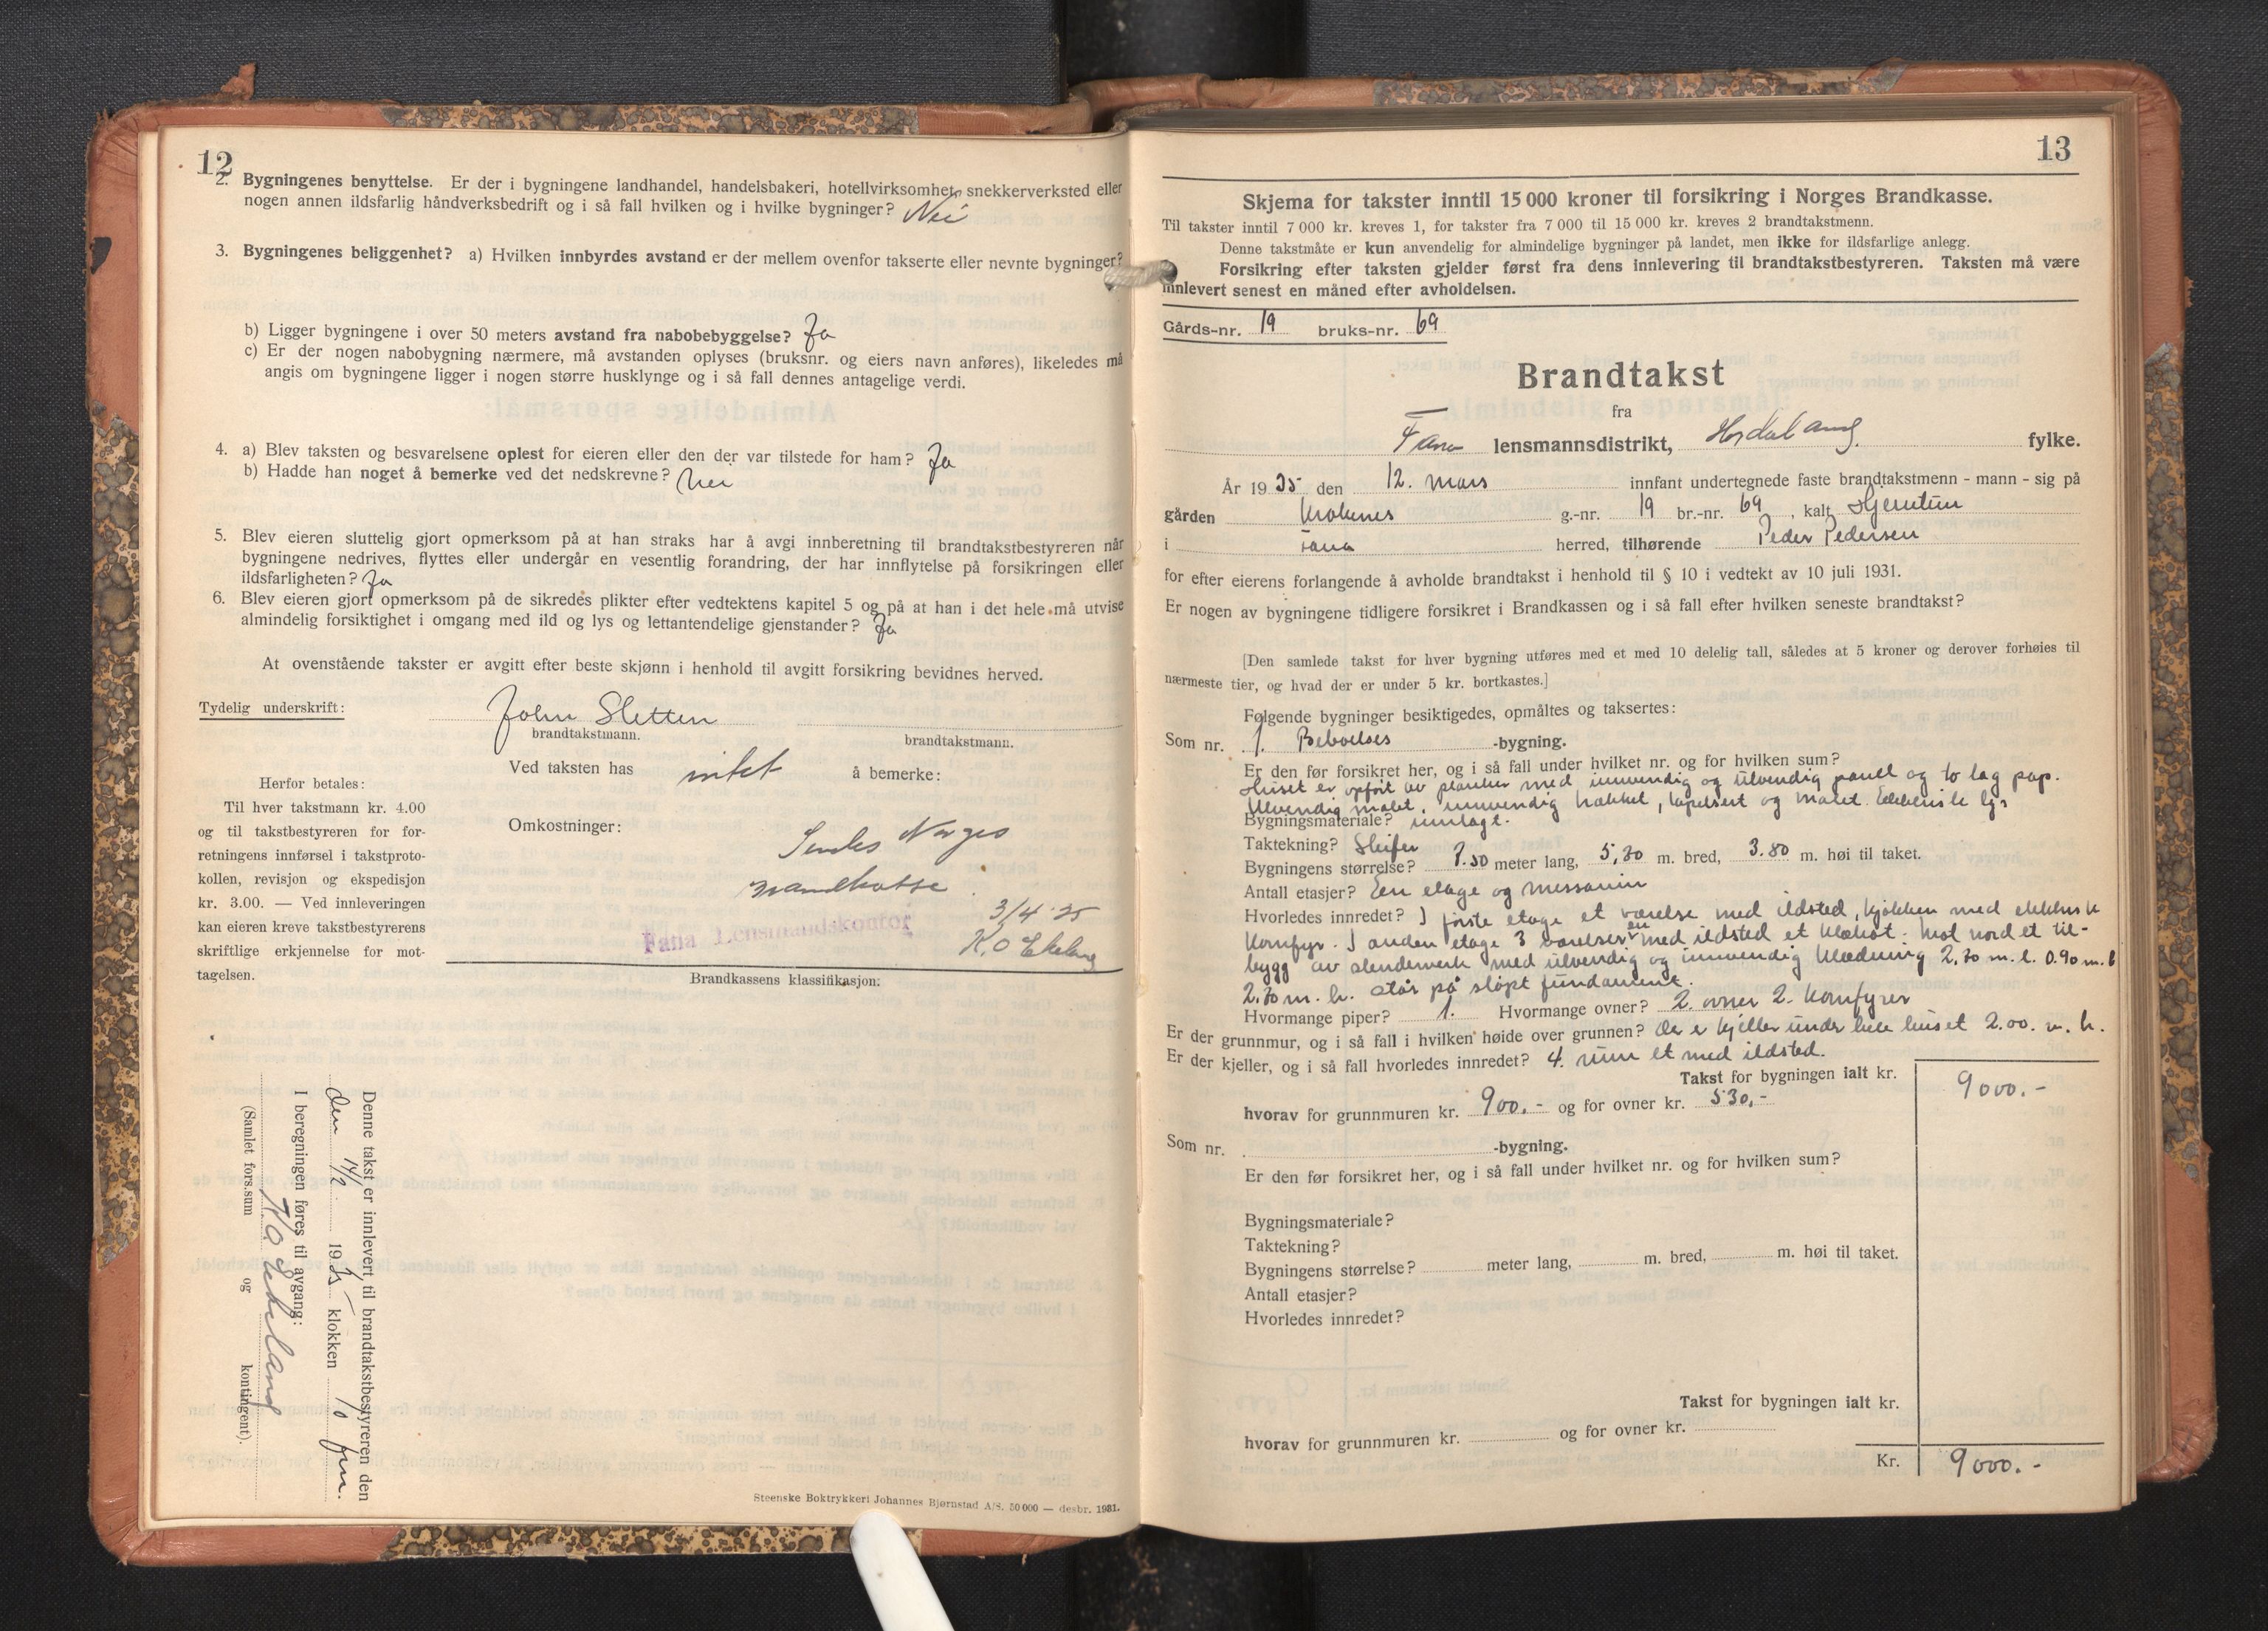 12
2. Bygningenes benyttelse. Er der i bygningene landhandel, handelsbakeri, hotellvirksomhet, snekkerverksted eller
nogen annen ildsfarlig håndverksbedrift og i så fall hvilken og i hvilke bygninger? Nei
3. Bygningenes beliggenhet? a) Hvilken innbyrdes avstand er der mellem ovenfor takserte eller nevnte bygninger?
b) Ligger bygningene i over 50 meters avstand fra nabobebyggelse? Ja
c) Er der nogen nabobygning nærmere, må avstanden oplyses (bruksnr. og eiers navn anføres), likeledes må
angis om bygningene ligger i nogen større husklynge og i så fall dennes antagelige verdi.
4. a) Blev taksten og besvarelsene oplest for eieren eller den der var tilstede for ham? Ja
b) Hadde han noget å bemerke ved det nedskrevne? Nei
5. Blev eieren sluttelig gjort opmerksom på at han straks har å avgi innberetning til brandtakstbestyreren når
bygningene nedrives, flyttes eller undergår en vesentlig forandring, der har innflytelse på forsikringen eller
ildsfarligheten? Ja
6. Blev eieren gjort opmerksom på de sikredes plikter efter vedtektens kapitel 5 og på at han i det hele må utvise
almindelig forsiktighet i omgang med ild og lys og lettantendelige gjenstander? Ja
At ovenstående takster er avgitt efter beste skjønn i henhold til avgitt forsikring bevidnes herved.
Tydelig underskrift: John Sletten
brandtakstmann. brandtakstmann.
Ved taksten has intet å bemerke:
Herfor betales:
Til hver takstmann kr. 4.00
og til takstbestyreren for for-
retningens innførsel i takstproto-
kollen, revisjon og ekspedisjon
kr. 3.00. — Ved innleveringen
kan eieren kreve takstbestyrerens
skriftlige erkjennelse for mot-
tagelsen.
Omkostninger:
Sendes Norges
Brandkasse
3/4 35
Fana Lensmandskontor
K.O Ekeland
Brandkassens klassifikasjon:
Denne takst er innlevert til brandtakstbestyreren den
den 14/2 1935 klokken 10 fm.
I beregningen føres til avgang:
K O Ekeland
(Samlet fors.sum og kontingent).
Steenske Boktrykkeri Johannes Bjørnstad A/S. 50 000 — desbr. 1931.
13
Skjema for takster inntil 15 000 kroner til forsikring i Norges Brandkasse.
Til takster inntil 7 000 kr. kreves 1, for takster fra 7 000 til 15 000 kr. kreves 2 brandtakstmenn.
Denne takstmåte er kun anvendelig for almindelige bygninger på landet, men ikke for ildsfarlige anlegg.
Forsikring efter taksten gjelder først fra dens innlevering til brandtakstbestyreren. Taksten må være
innlevert senest en måned efter avholdelsen.
Gårds-nr. 19 bruks-nr. 69
Brandtakst
fra
Fana lensmannsdistrikt, Hordaland fylke.
År 1935 den 12. mars innfant undertegnede faste brandtakstmenn - mann - sig på
gården Krokenes g.-nr. 19 br.-nr. 69, kalt
i Fana herred, tilhørende Peder Pedersen
for efter eierens forlangende å avholde brandtakst i henhold til § 10 i vedtekt av 10 juli 1931.
Er nogen av bygningene tidligere forsikret i Brandkassen og i så fall efter hvilken seneste brandtakst?
[Den samlede takst for hver bygning utføres med et med 10 delelig tall, således at 5 kroner og derover forhøies til
nærmeste tier, og hvad der er under 5 kr. bortkastes.]
Følgende bygninger besiktigedes, opmåltes og taksertes:
Som nr. 1. Beboelses -bygning.
Er den før forsikret her, og i så fall under hvilket nr. og for hvilken sum?
Huset er opført av planker med innvendig og utvendig panel og to lag pap.
Utvendig malet, innvendig trækket, tapetsert og malet. Elektriste lys
Bygningsmateriale? innlagt.
Taktekning? Skifer
Bygningens størrelse? 7.50 meter lang, 5,70 m. bred, 3.80 m. høi til taket.
Antall etasjer? Een etage og messanin
Hvorledes innredet? I første etage et værelse med ildsted, kjøkken med elektrisk
komfyr. I anden etage 3 værelser en med ildsted et klækot. Mot nord et til-
bygg av stenderverk med utvendig og innvendig klædning 2,70 m. l. 0.90 m. b
2.70 m. h. står på støpt fundament.
Hvormange piper? 1. Hvormange ovner? 2. ovner 2. komfyrer
Er der grunnmur, og i så fall i hvilken høide over grunnen? der er kjeller under hele huset 2.00. m. h.
Er der kjeller, og i så fall hvorledes innredet? 4. rum et med ildsted.
Takst for bygningen ialt kr. 9000.-
hvorav for grunnmuren kr. 900.- og for ovner kr. 530.-
Som nr. -bygning.
Er den før forsikret her, og i så fall under hvilket nr. og for hvilken sum?
Bygningsmateriale?
Taktekning?
Bygningens størrelse? meter lang, m. bred, m. høi til taket.
Antall etasjer?
Hvorledes innredet?
Takst for bygningen ialt kr.
hvorav for grunnmuren kr. og for ovner kr.
Kr. 9000.-